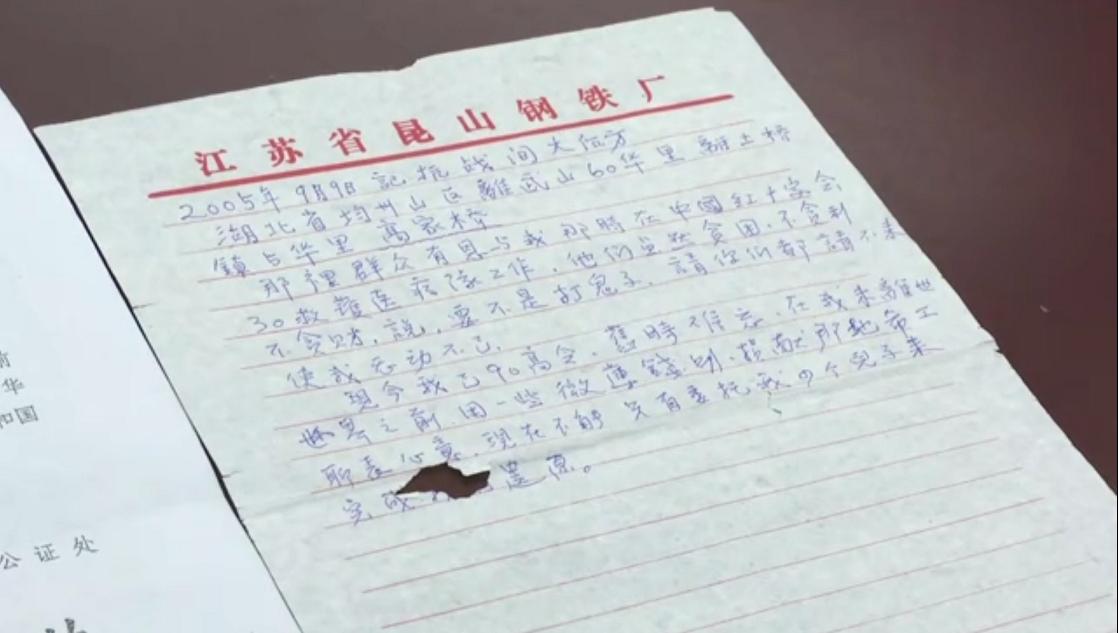 江苏省昆山钢铁厂
2005年9月9日 記抗战间大后方
湖北省均州山区離武山60华里 離土桥
鎮5华里 高家桥
那里群众有恩与我 那時在中國红十字会
30救護医疗隊工作，他们虽然贫困，不贪利
不贪财，説，要不是打鬼子，請你们都請不来
使我感动不已
現今我已90高令，舊時难忘，在我未離世
世界之前，用一些微薄錢财，捐献那地希工
聊表心意，現在不能 只有委托我的个兒子来
完成 遗原。
前
华
和国
公证处